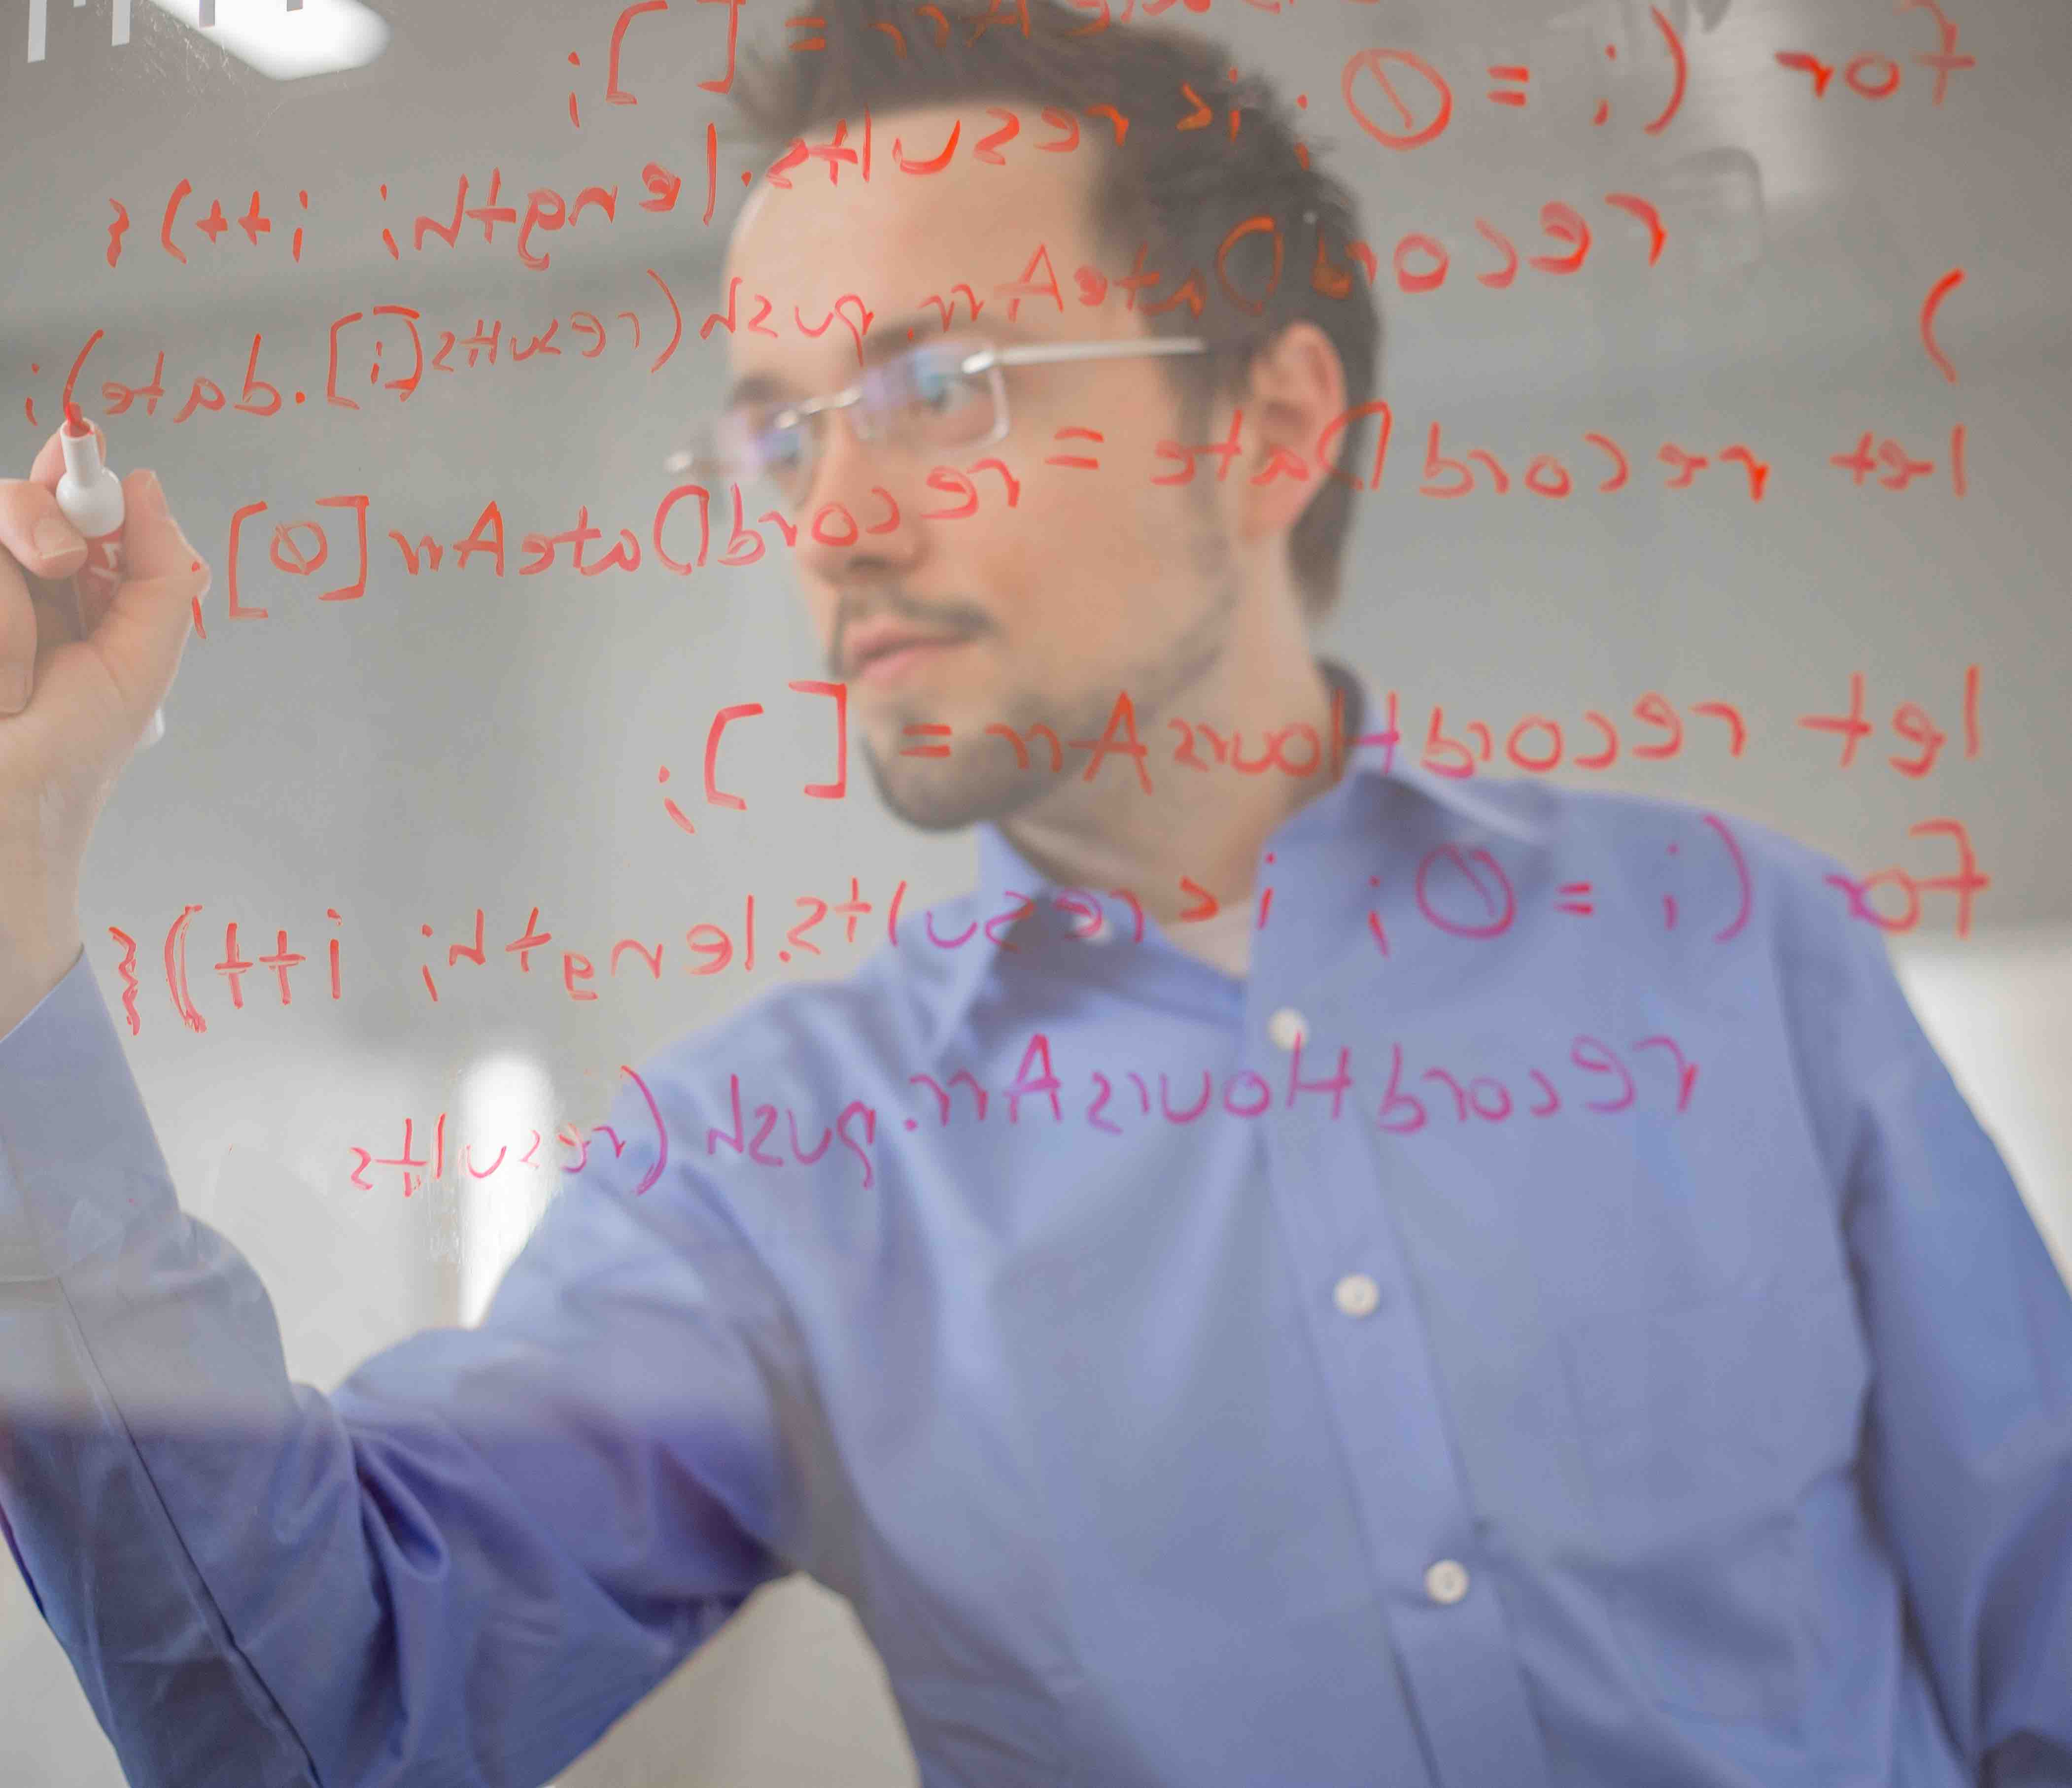 Arr = [ ];
for (i = 0; i < results.length; i++){
recordDateArr.push(results[i].date);
)
let recordDate = recordDateArr[0];
let recordHoursArr = [ ];
for (i = 0; i < results.length; i++){
recordHoursArr.push(results